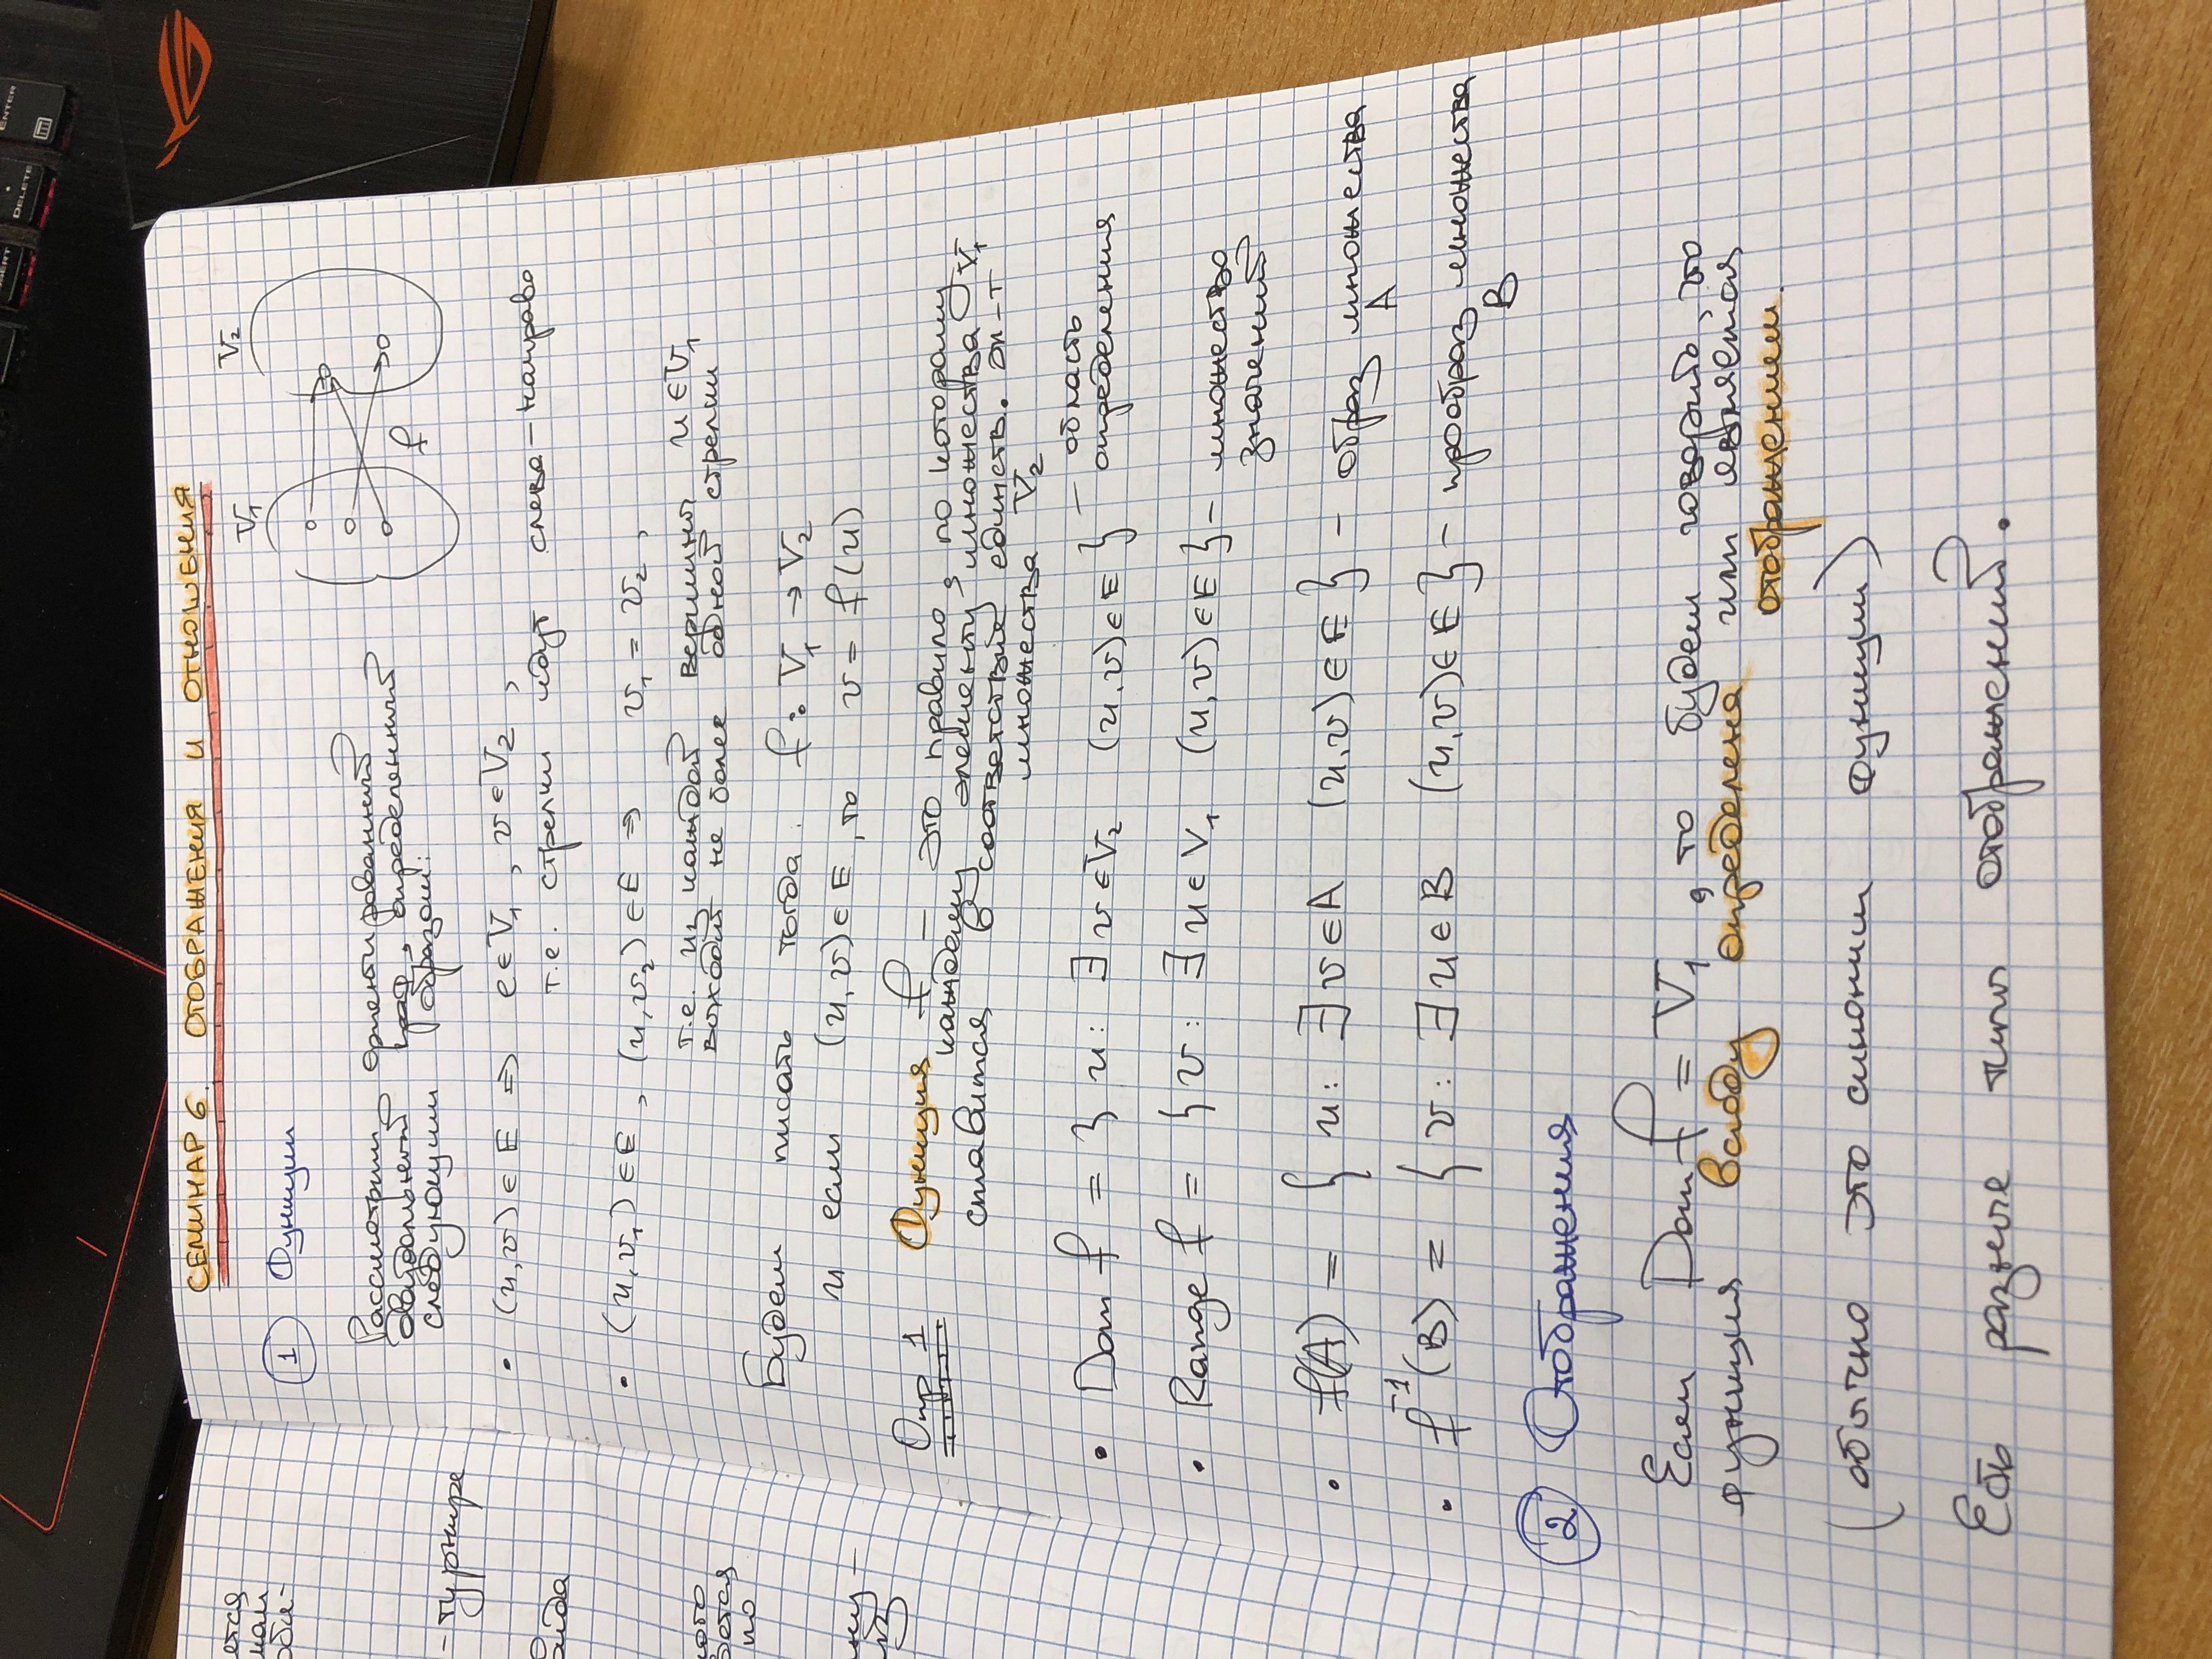 INSERT
DELETE
ENTER
СЕМИНАР 6. ОТОБРАЖЕНИЯ И ОТНОШЕНИЯ
V₁ V₂
1 Функции
f
Рассмотрим ориентированный
двудольный граф, определенный
следующим образом:
• (u,v) ∈ E ⇒ e ∈ V₁, v ∈ V₂,
т.е. стрелки идут слева-направо
• (u,v₁) ∈ E, (u,v₂) ∈ E ⇒ v₁ = v₂,
т.е. из каждой вершины u ∈ V₁
выходит не более одной стрелки
Будем писать тогда f: V₁ → V₂
и если (u,v) ∈ E, то v = f(u)
Опр 1 Функция f – это правило, по которому
каждому элементу множества V₁
ставится в соответствие единств. эл-т
множества V₂
• Dom f = { u: ∃ v ∈ V₂ (u,v) ∈ E } – область
определения
• Range f = { v: ∃ u ∈ V₁ (u,v) ∈ E } – множество
значений
• f(A) = { u: ∃ v ∈ A (u,v) ∈ E } – образ множества
A
• f⁻¹(B) = { v: ∃ u ∈ B (u,v) ∈ E } – прообраз множества
B
2 Отображения
Если Dom f = V₁, то будем говорить, что
функция всюду определена или является
отображением.
(обычно это синоним функции)
Есть разные типы отображений.
ется
– турнире
ого
ется
по